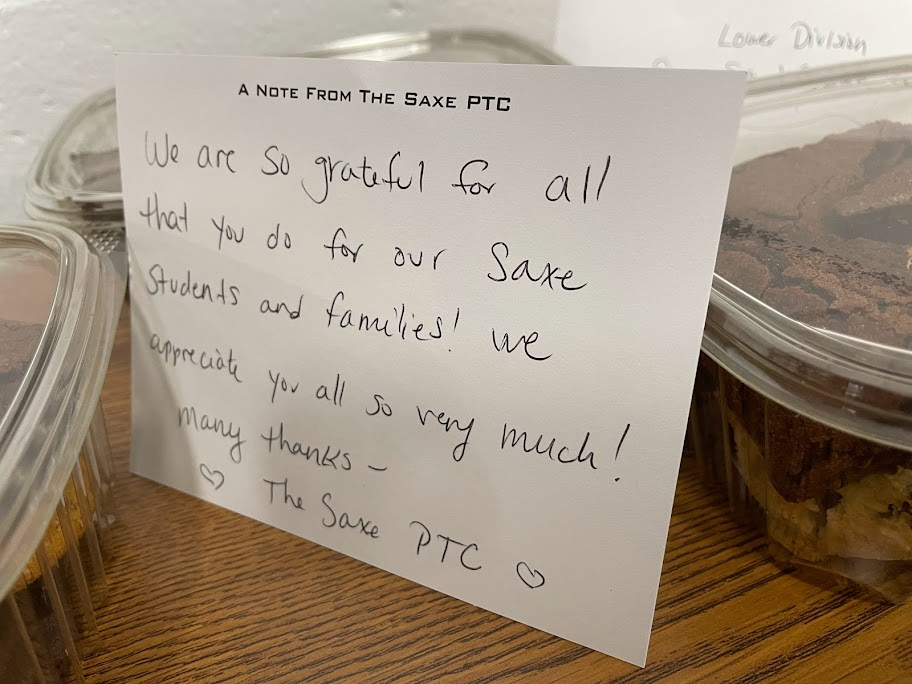 Lower Division
A NOTE FROM THE SAXE PTC
We are so grateful for all
that you do for our Saxe
students and families! We
appreciate you all so very much!
Many thanks –
♡ The Saxe PTC ♡